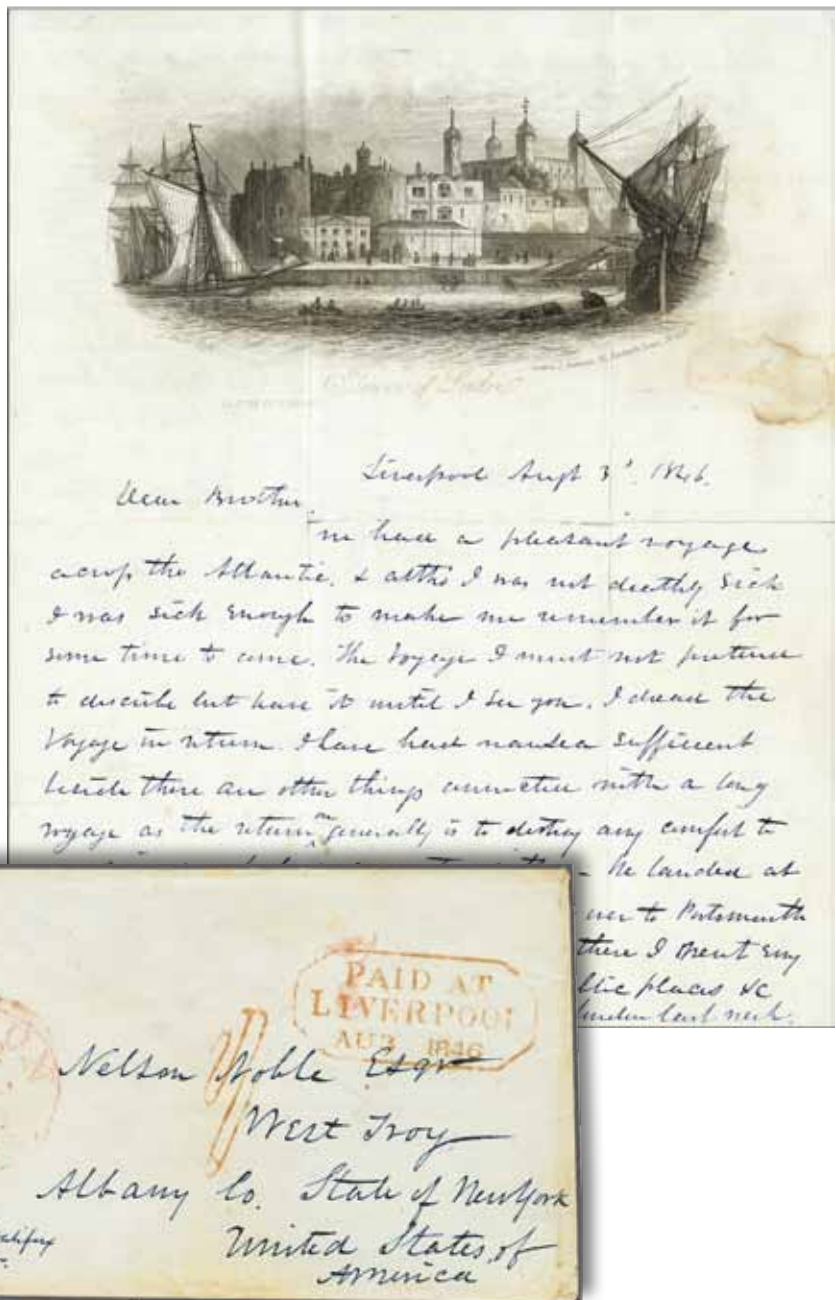 Tower of London
Liverpool Augt 3d. 1846.
Dear Brother,
We had a pleasant voyage
across the Atlantic, & altho I was not deathly sick
I was sick enough to make me remember it for
some time to come. The Voyage I must not pretend
to describe but leave it until I see you. I dread the
Voyage in return. I have had nausea sufficient
beside there are other things connected with a long
voyage as the return generally is to destroy any comfort to
We landed at
over to Portsmouth
there I spent
public places &c
London last week.
PAID AT
LIVERPOOL
AU 3 1846
Nelson Noble Esqr
West Troy
Albany Co. State of New York
United States of
America
Halifax